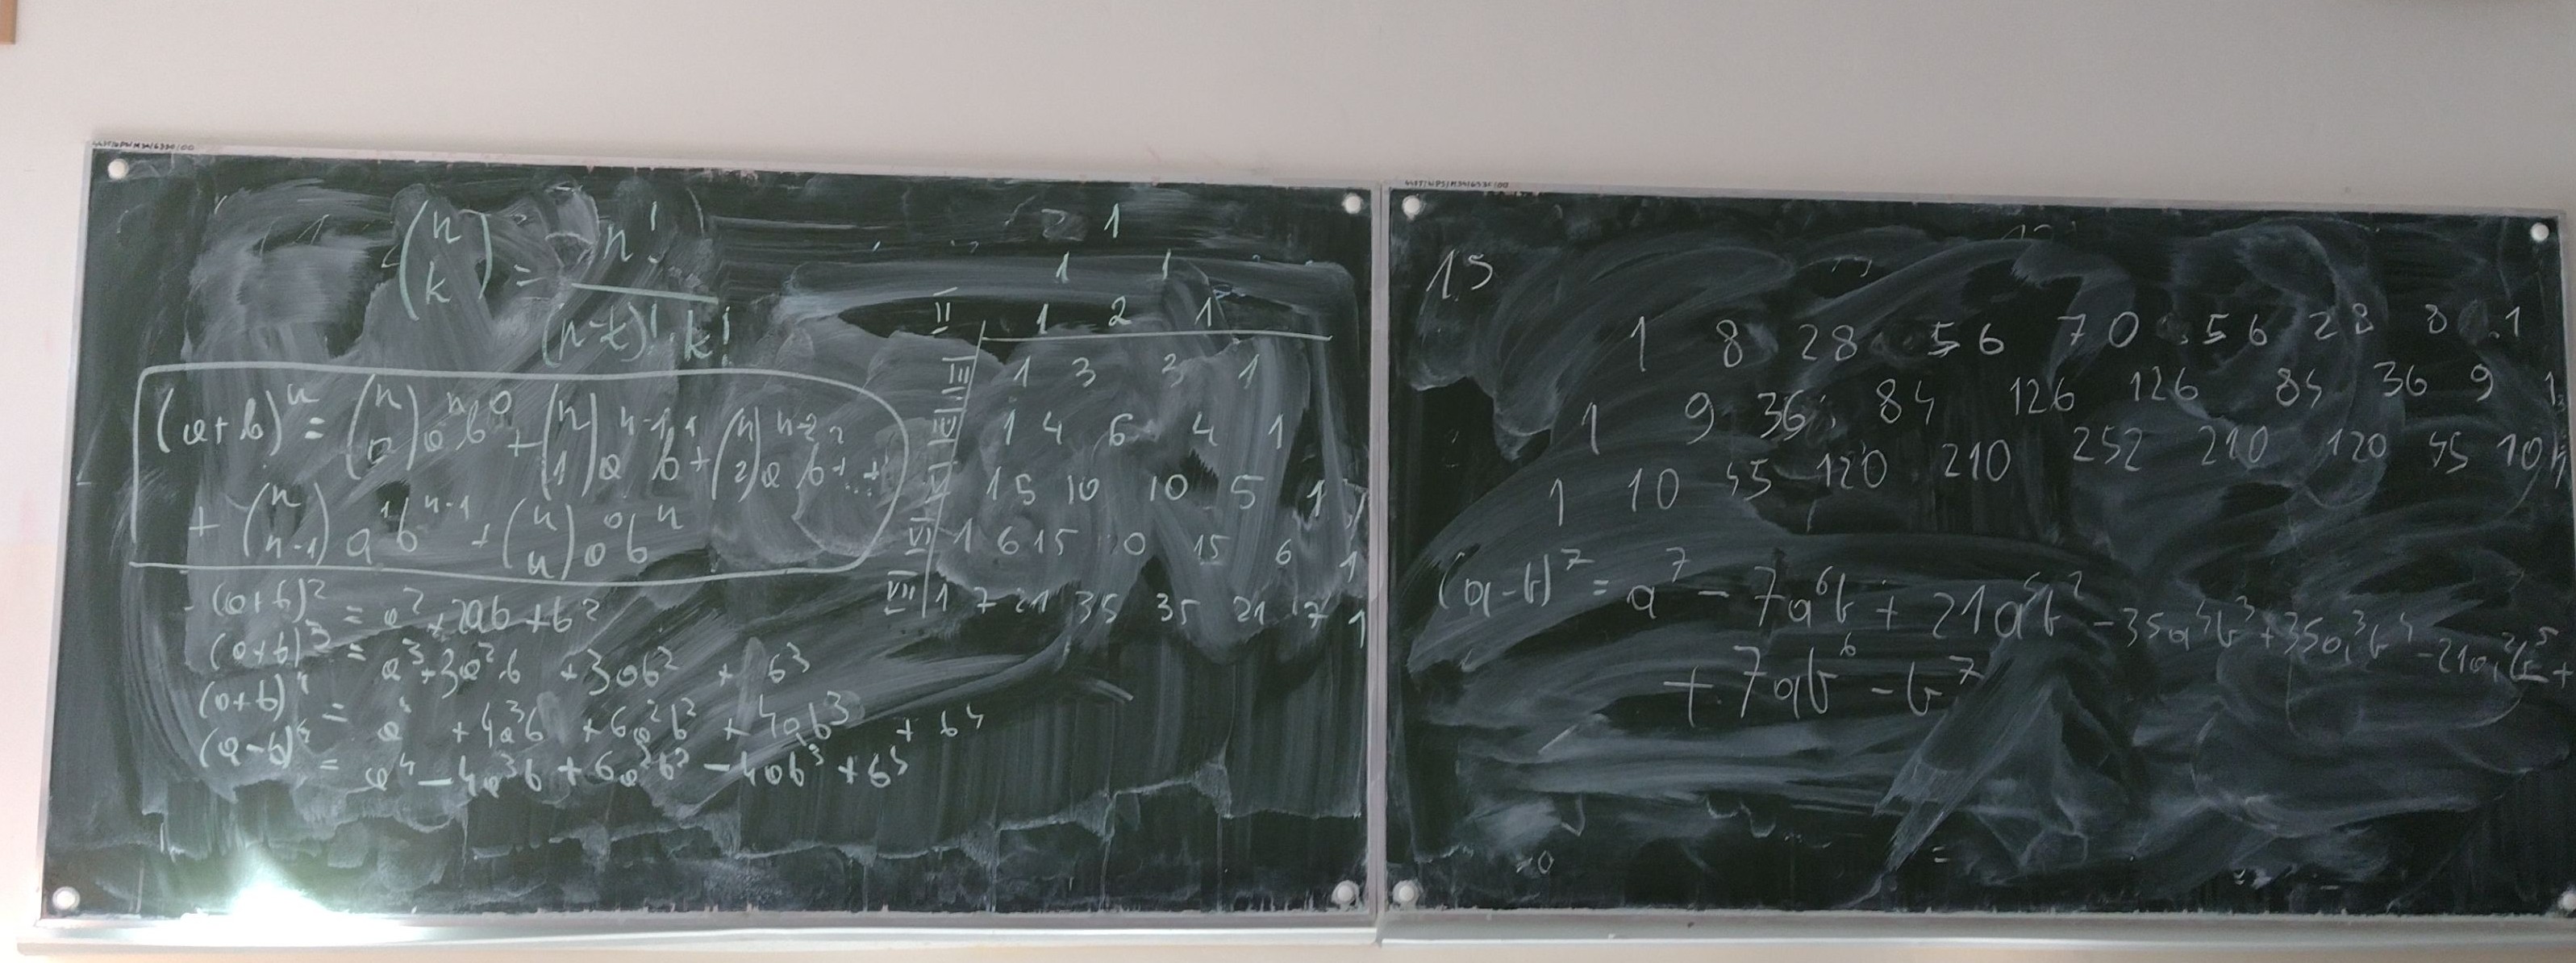 (n k) = n! / (n-k)! · k!
(a+b)ⁿ = (n 0) aⁿ b⁰ + (n 1) aⁿ⁻¹ b¹ + (n 2) aⁿ⁻² b² + ... +
+ (n n-1) a¹ bⁿ⁻¹ + (n n) a⁰ bⁿ
(a+b)² = a² + 2ab + b²
(a+b)³ = a³ + 3a²b + 3ab² + b³
(a+b)⁴ = a⁴ + 4a³b + 6a²b² + 4ab³ + b⁴
(a-b)⁴ = a⁴ - 4a³b + 6a²b² - 4ab³ + b⁴
1
1 1
II 1 2 1
III 1 3 3 1
IV 1 4 6 4 1
V 1 5 10 10 5 1
VI 1 6 15 0 15 6 1
VII 1 7 21 35 35 21 7 1
15
1 8 28 56 70 56 28 8 1
1 9 36 84 126 126 84 36 9 1
1 10 45 120 210 252 210 120 45 10 1
(a-b)⁷ = a⁷ - 7a⁶b + 21a⁵b² - 35a⁴b³ + 35a³b⁴ - 21a²b⁵ +
+ 7ab⁶ - b⁷